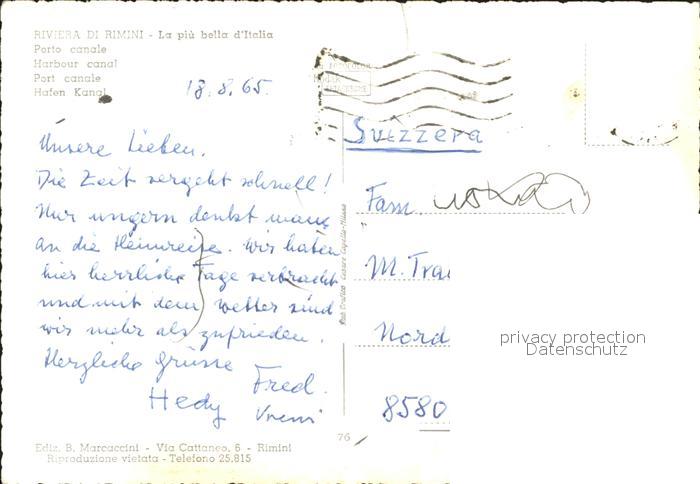 RIVIERA DI RIMINI - La più bella d'Italia
Porto canale
Harbour canal
Port canale
Hafen Kanal
18.8.65.
Svizzera
Unsere Lieben.
Die Zeit vergeht schnell!
Nur ungern denkt man
an die Heimreise. Wir haben
hier herrliche Tage verbracht
und mit dem Wetter sind
wir mehr als zufrieden.
Herzliche Grüsse
Fred.
Hedy Vreni
Fam.
M. Tra
Nord
8580
privacy protection
Datenschutz
76
Ediz. B. Marcaccini - Via Cattaneo, 6 - Rimini
Riproduzione vietata - Telefono 25.815